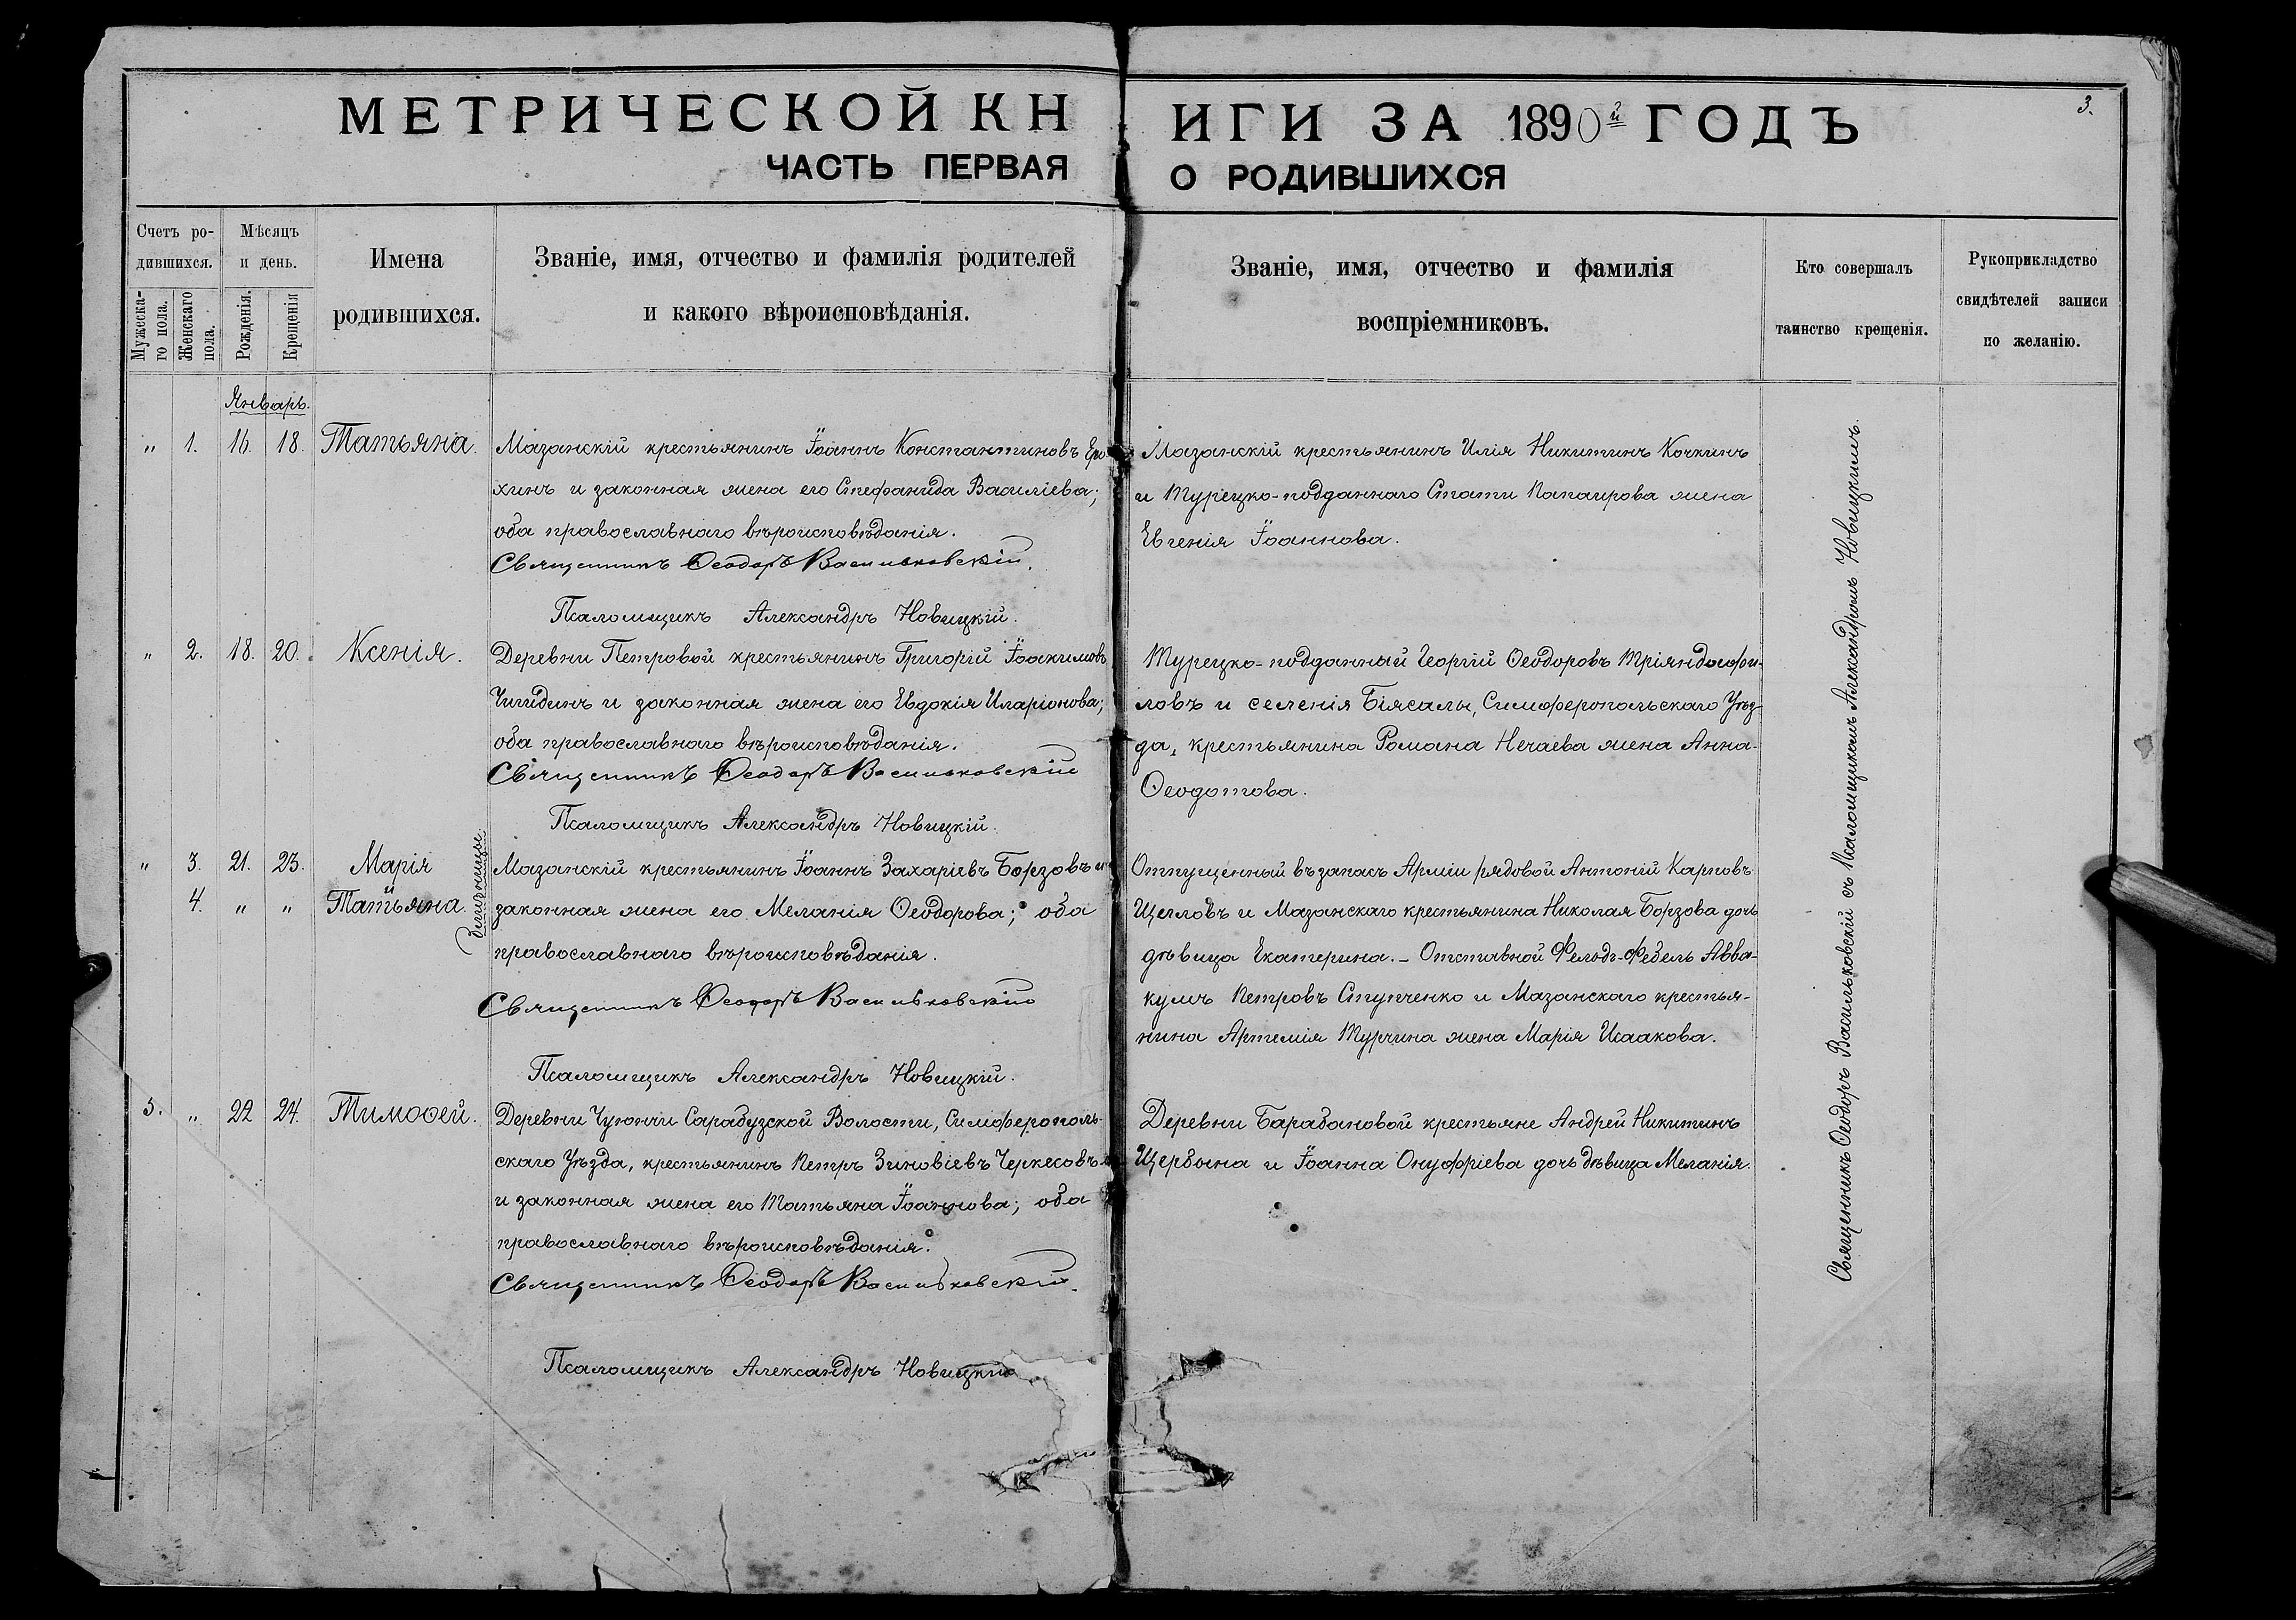 МЕТРИЧЕСКОЙ КНИГИ ЗА 1890й ГОДЪ
3.
ЧАСТЬ ПЕРВАЯ О РОДИВШИХСЯ
Счетъ ро-
дившихся.
Мужеска-
го пола.
Женскаго
пола.
Мѣсяцъ
и день.
Рожденія.
Крещенія
Имена
родившихся.
Званіе, имя, отчество и фамилія родителей
и какого вѣроисповѣданія.
Званіе, имя, отчество и фамилія
воспріемниковъ.
Кто совершалъ
таинство крещенія.
Рукоприкладство
свидѣтелей записи
по желанію.
Январь.
" 1. 16. 18. Татьяна.
Мазанскій крестьянинъ Іоаннъ Константиновъ Еро-
хинъ и законная жена его Стефанида Василіева;
оба православнаго вѣроисповѣданія.
Священникъ Ѳеодоръ Васильковскій.
Псаломщикъ Александръ Новицкій.
Мазанскій крестьянинъ Илія Никитинъ Кочкинъ
и Турецко-подданнаго Стати Папаирова жена
Евгенія Іоаннова.
" 2. 18. 20. Ксенія.
Деревни Петровой крестьянинъ Григорій Іоакимовъ
Чигидинъ и законная жена его Евдокія Иларіонова;
оба православнаго вѣроисповѣданія.
Священникъ Ѳеодоръ Васильковскій
Псаломщикъ Александръ Новицкій.
Турецко-подданный Георгій Ѳеодоровъ Тріяндофи-
ловъ и селенія Біясалы, Симферопольскаго Уѣз-
да, крестьянина Романа Нечаева жена Анна
Ѳеодотова.
" 3. 21. 23. Марія
4. " " Татьяна.
близницы
Мазанскій крестьянинъ Іоаннъ Захаріевъ Борзовъ и
законная жена его Меланія Ѳеодорова; оба
православнаго вѣроисповѣданія.
Священникъ Ѳеодоръ Васильковскій
Псаломщикъ Александръ Новицкій.
Отпущенный въ запасъ Арміи рядовой Антоній Карповъ
Щегловъ и Мазанскаго крестьянина Николая Борзова дочь
дѣвица Екатерина. – Отставной Фельдъ-Фебель Авва-
кумъ Петровъ Ступченко и Мазанскаго крестья-
нина Артемія Турчина жена Марія Исаакова.
5. " 22 24. Тимоѳей.
Деревни Чуюнчи Сарабузской Волости, Симферополь-
скаго Уѣзда, крестьянинъ Петръ Зиновіевъ Черкесовъ
и законная жена его Татьяна Іоаннова; оба
православнаго вѣроисповѣданія.
Священникъ Ѳеодоръ Васильковскій.
Псаломщикъ Александръ Новицкій
Деревни Барабановой крестьяне Андрей Никитинъ
Щербина и Іоанна Онуфріева дочь дѣвица Меланія.
Священникъ Ѳеодоръ Васильковскій съ Псаломщикомъ Александромъ Новицкимъ.